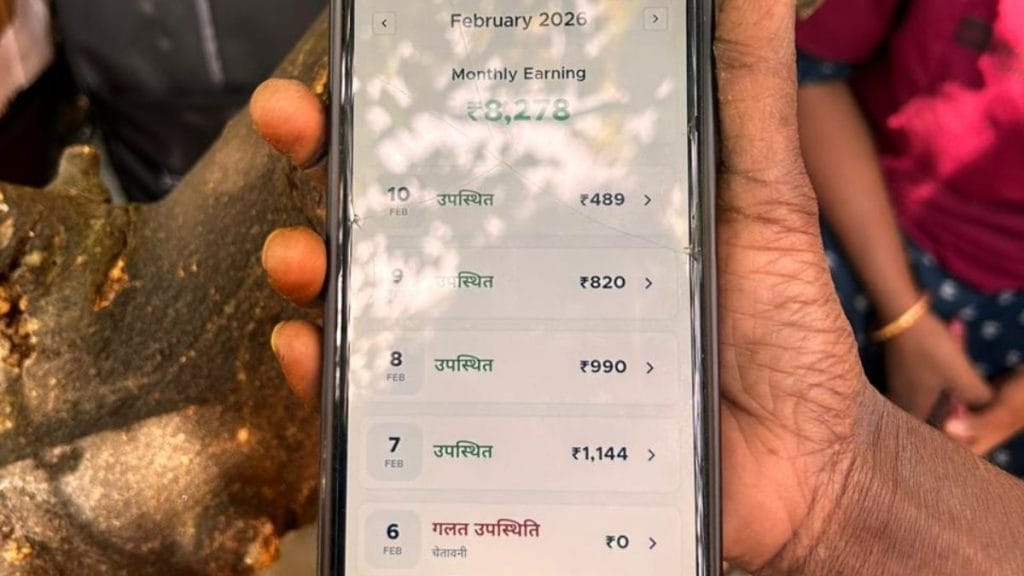 February 2026
Monthly Earning
₹8,278
10 उपस्थित ₹489
FEB
9 उपस्थित ₹820
8 उपस्थित ₹990
FEB
7 उपस्थित ₹1,144
FEB
6 गलत उपस्थिति ₹0
FEB चेतावनी